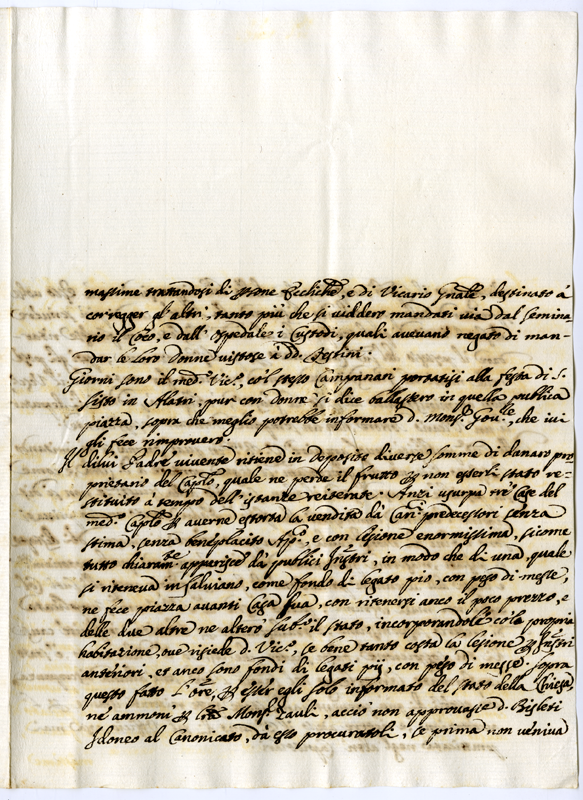 massime trattandosi di psone Ecclich̃e, e di Vicario Gñale, destinato à
correger gl'altri, tanto più che si viddero mandati via dal Semina-
rio il Coco, e dall'Ospedale i Custodi, quali avevano negato di man-
dar le loro Donne vistose à dd. Festini.
Giorni sono il med.º Vic.º, co'l stesso Campanari portatisi alla festa di S.
Sisto in Alatri, pur con donne si dice ballassero in quella publica
piazza, sopra che meglio potrebbe informare d. Mons.r Gov.re, che ivi
gli fece rimproverò.
Il dilui Padre vivente ritiene in deposito diverse somme di danaro pro-
prietario del Capl̃o, quale ne perde il frutto p non esserli stato re-
stituito à tempo dell'istanze reiterate. Anzi usurpa trè Case del
med.º Capl̃o p averne estorta la vendita dà Can.ci predecessori senza
stima, senza beneplacito Ap.º, e con lesione enormissima, sicome
tutto chiaram.te apparisce dà publici Istri, in modo che di una, quale
si riteneva in salviano, come fondo di legato pio, con peso di messe,
ne fece piazza avanti Casa sua, con ritenersi anco il poco prezzo, e
delle due altre ne alterò sub.º il stato, incorporandole co'la propria
habitazione, ove risiede d. Vic.º, se bene tanto costa la lesione p Istri
anteriori, et anco sono fondi di legati pij, con peso di messe. sopra
questo fatto l'ōre, p esser egli solo informato del stato della Chiesa
nè ammonì p lr̃e Mons.r Pauli, acciò non approvasse d. Bisleti
Idoneo al Canonicato, da esso procuratoli, se prima non veniva